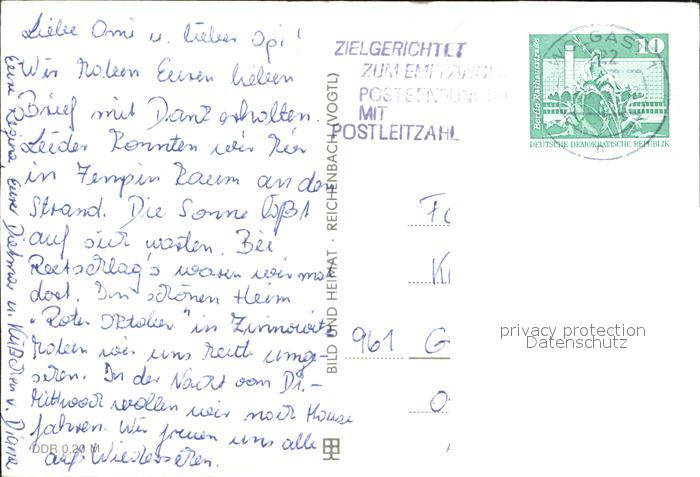 Liebe Omi u. lieber Opi!
Wir haben Euren lieben
Brief mit Dank erhalten.
Leider konnten wir hier
in Zempin kaum an den
Strand. Die Sonne läßt
auf sich warten. Bei
waren wir mal
dort. Im schönen Heim
"Roter Oktober" in Zinnowitz
haben wir uns heute umge-
sehen. In der Nacht vom Di.-
Mittwoch wollen wir nach Hause
fahren. Wir freuen uns alle
aufs Wiedersehen.
Eure Regina, Euer Dietmar u. Küßchen v. Diana
DDR 0.20 M
BILD UND HEIMAT · REICHENBACH (VOGTL)
ZIELGERICHTET
ZUM EMPFÄNGER
POSTSENDUNGEN
MIT
POSTLEITZAHL
WOLGAST 1
22
10
Berlin, Rathausstraße
DEUTSCHE DEMOKRATISCHE REPUBLIK
961 G
privacy protection
Datenschutz